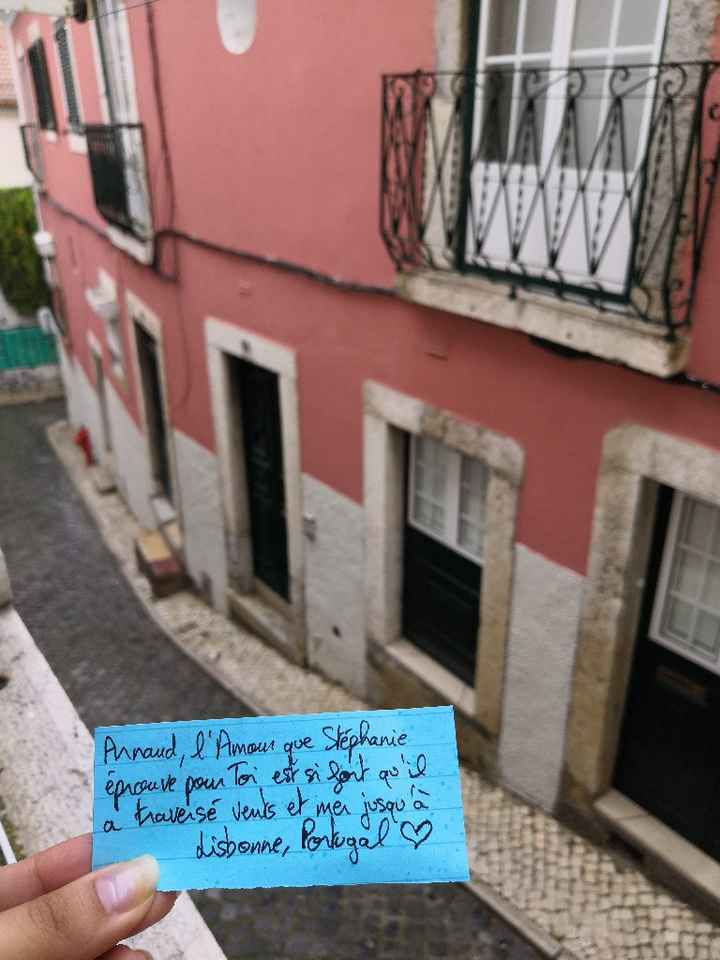 Arnaud, l'Amour que Stéphanie
éprouve pour Toi est si fort qu'il
a traversé vents et mer jusqu'à
Lisbonne, Portugal ♡